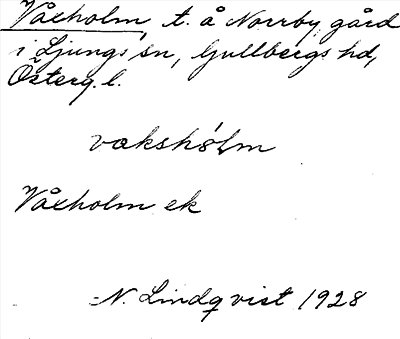 Våxholm, t. å Norrby gård
i Ljungs sn, Gullbergs hd,
Österg. l.
våkshòlm
Våxholm ek
N. Lindqvist 1928